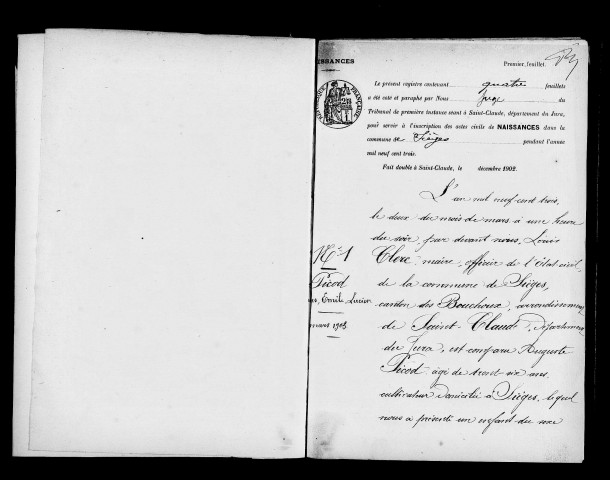 NAISSANCES
Premier feuillet.
RÉPUBLIQUE FRANÇAISE
Le présent registre contenant quatre feuillets
a été coté et paraphé par Nous Juge du
Tribunal de première instance séant à Saint-Claude, département du Jura,
pour servir à l'inscription des actes civils de NAISSANCES dans la
commune de Sièges pendant l'année
mil neuf cent trois.
Fait double à Saint-Claude, le décembre 1902.
N° 1
Picod
Emile Lucien
mars 1903
L'an mil neuf cent trois,
le deux du mois de mars à une heure
du soir, par devant nous, Louis
Clerc, maire, officier de l'état civil
de la commune de Sièges,
canton des Bouchoux, arrondissement
de Saint-Claude, département
du Jura, est comparu Auguste
Picod âgé de trente six ans
cultivateur domicilié à Sièges, lequel
nous a présenté un enfant du sexe